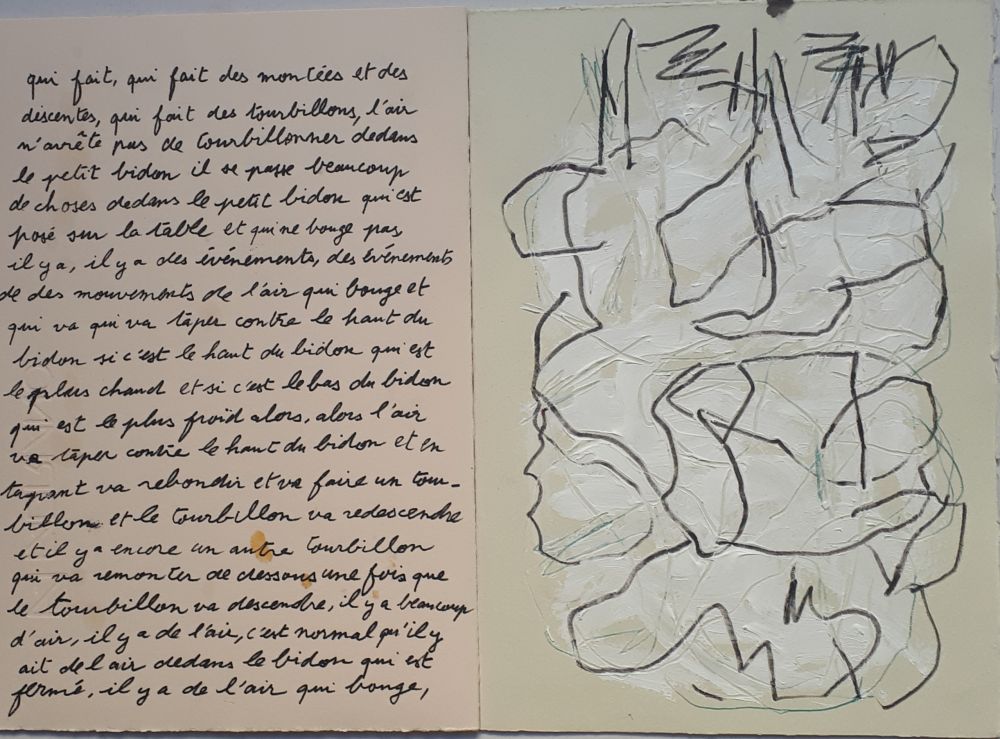 qui fait, qui fait des montées et des
descentes, qui fait des tourbillons, l'air
n'arrête pas de tourbillonner dedans
le petit bidon il se passe beaucoup
de choses dedans le petit bidon qui est
posé sur la table et qui ne bouge pas
il y a, il y a des événements, des événements
de des mouvements de l'air qui bouge et
qui va qui va taper contre le haut du
bidon si c'est le haut du bidon qui est
le plus chaud et si c'est le bas du bidon
qui est le plus froid alors, alors l'air
va taper contre le haut du bidon et en
tapant va rebondir et va faire un tour-
billon et le tourbillon va redescendre
et il y a encore un autre tourbillon
qui va remonter de dessous une fois que
le tourbillon va descendre, il y a beaucoup
d'air, il y a de l'air, c'est normal qu'il y
ait de l'air dedans le bidon qui est
fermé, il y a de l'air qui bouge,